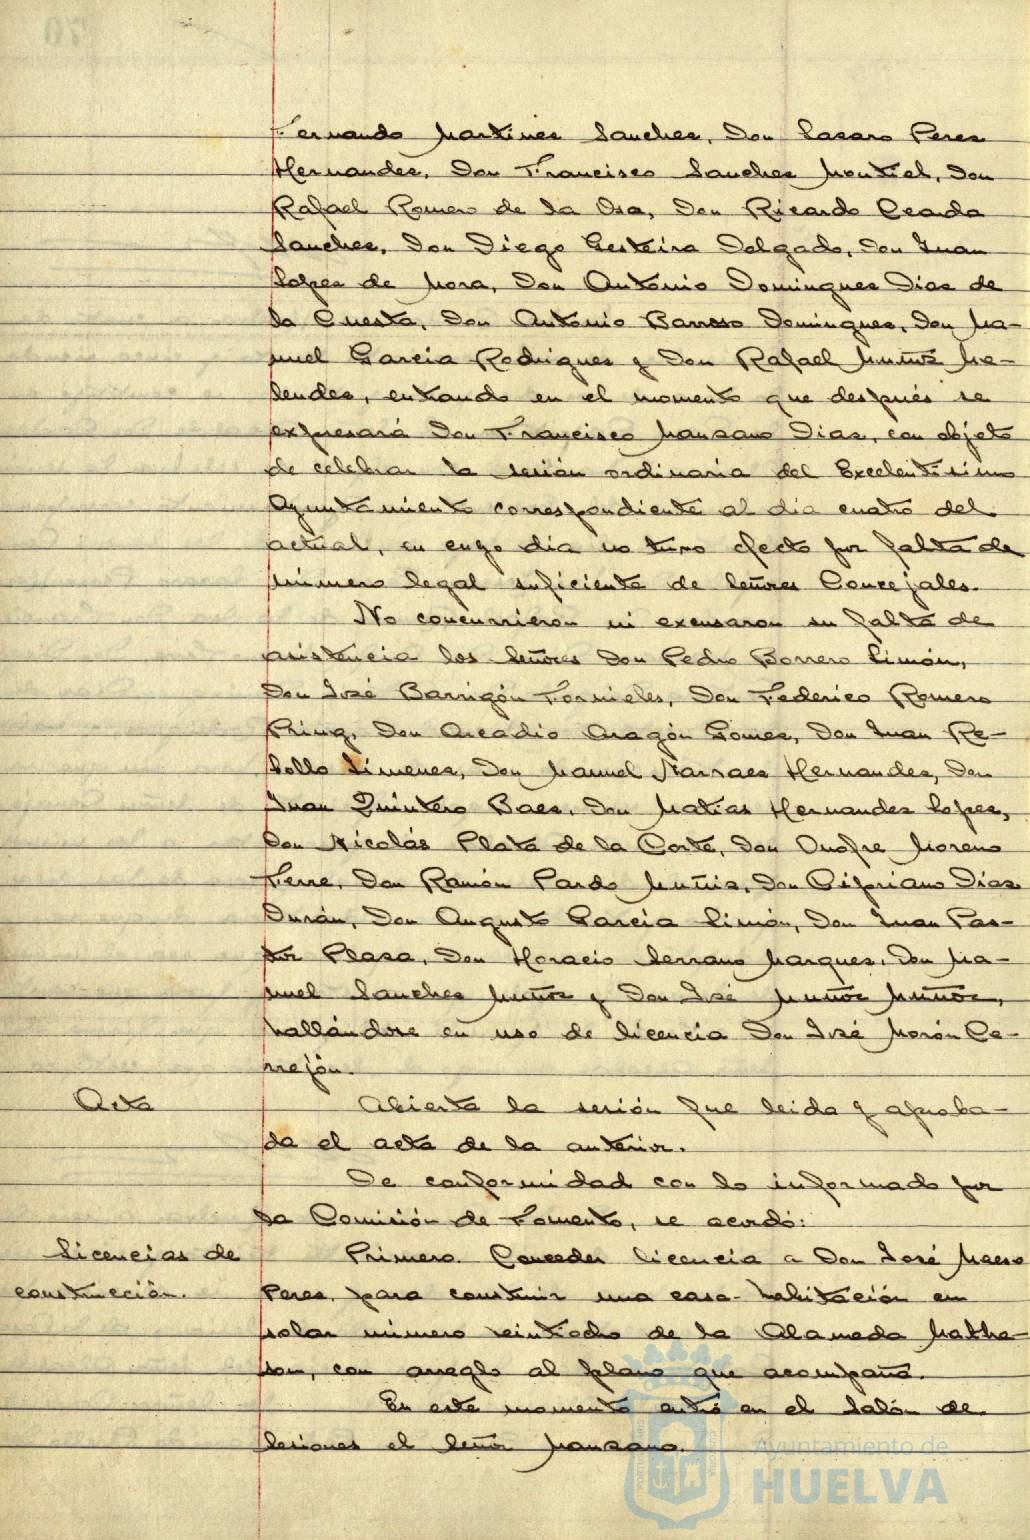 Fernando Martines Sanches, Don Lasaro Peres
Hernandes, Don Francisco Sanches Montiel, Don
Rafael Romero de la Osa, Don Ricardo Cearda
Sanches, Don Diego Gesteira Delgado, Don Juan
Lopes de Mora, Don Antonio Domingues Dias de
la Cuesta, Don Antonio Barroso Domingues, Don Ma-
nuel Garcia Rodrigues y Don Rafael Muñoz Me-
lendes, entrando en el momento que después se
expresará Don Francisco Mansano Dias, con objeto
de celebrar la sesión ordinaria del Excelentísimo
Ayuntamiento correspondiente al día cuatro del
actual, en cuyo día no tuvo efecto por falta de
número legal suficiente de Señores Concejales.
No concurrieron ni excusaron su falta de
asistencia los Señores Don Pedro Borrero Limón,
Don José Barrigón Fornieles, Don Federico Romero
Pring, Don Arcadio Aragón Gomes, Don Juan Re-
bollo Jimenes, Don Manuel Narvaes Hernandes, Don
Juan Quintero Baes, Don Matías Hernandes Lopes,
Don Nicolás Plata de la Corte, Don Onofre Moreno
Ferre, Don Ramón Pardo Muñis, Don Cipriano Dias
Durán, Don Augusto Garcia Limón, Don Juan Pas-
tor Plasa, Don Horacio Serrano Marques, Don Ma-
nuel Sanches Muñoz y Don José Muñoz Muñoz,
hallándose en uso de licencia Don José Morón Ce-
rrejón.
Acta
Abierta la sesión fue leida y aproba-
da el acta de la anterior.
De conformidad con lo informado por
la Comisión de Fomento, se acordó:
Licencias de
construcción.
Primero. Conceder licencia a Don José Maeso
Peres, para construir una casa-habitación en
solar número veintiocho de la Alameda Mathe-
son, con arreglo al plano que acompaña.
En este momento entró en el Salón de
Sesiones el Señor Mansano.
Ayuntamiento de
HUELVA